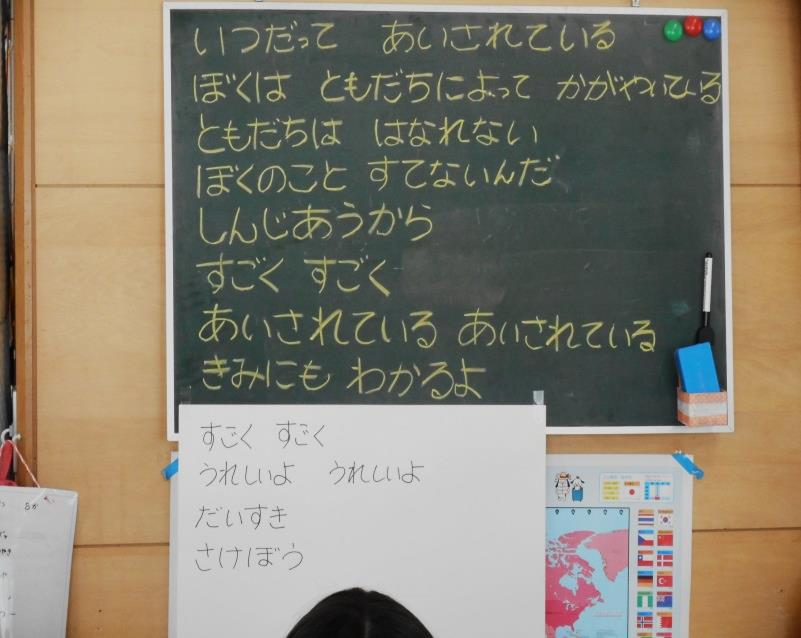 いつだって あいされている
ぼくは ともだちによって かがやいてる
ともだちは はなれない
ぼくのこと すてないんだ
しんじあうから
すごく すごく
あいされている あいされている
きみにも わかるよ
すごく すごく
うれしいよ うれしいよ
だいすき
さけぼう